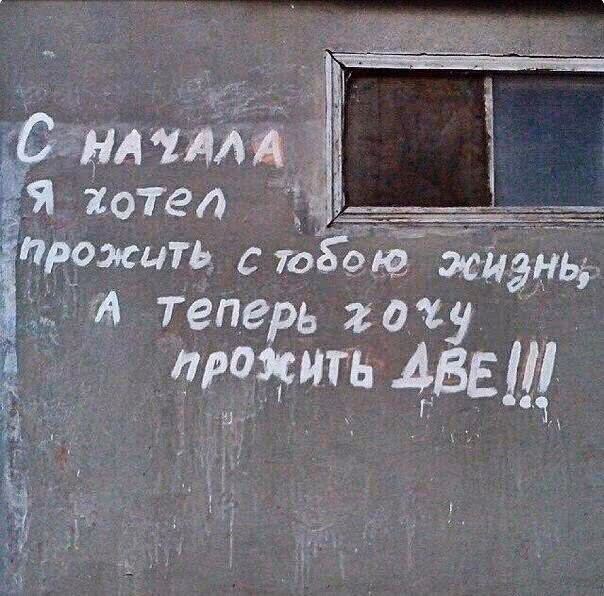 С НАЧАЛА
Я хотел
прожить с тобою жизнь,
А теперь хочу
прожить ДВЕ!!!